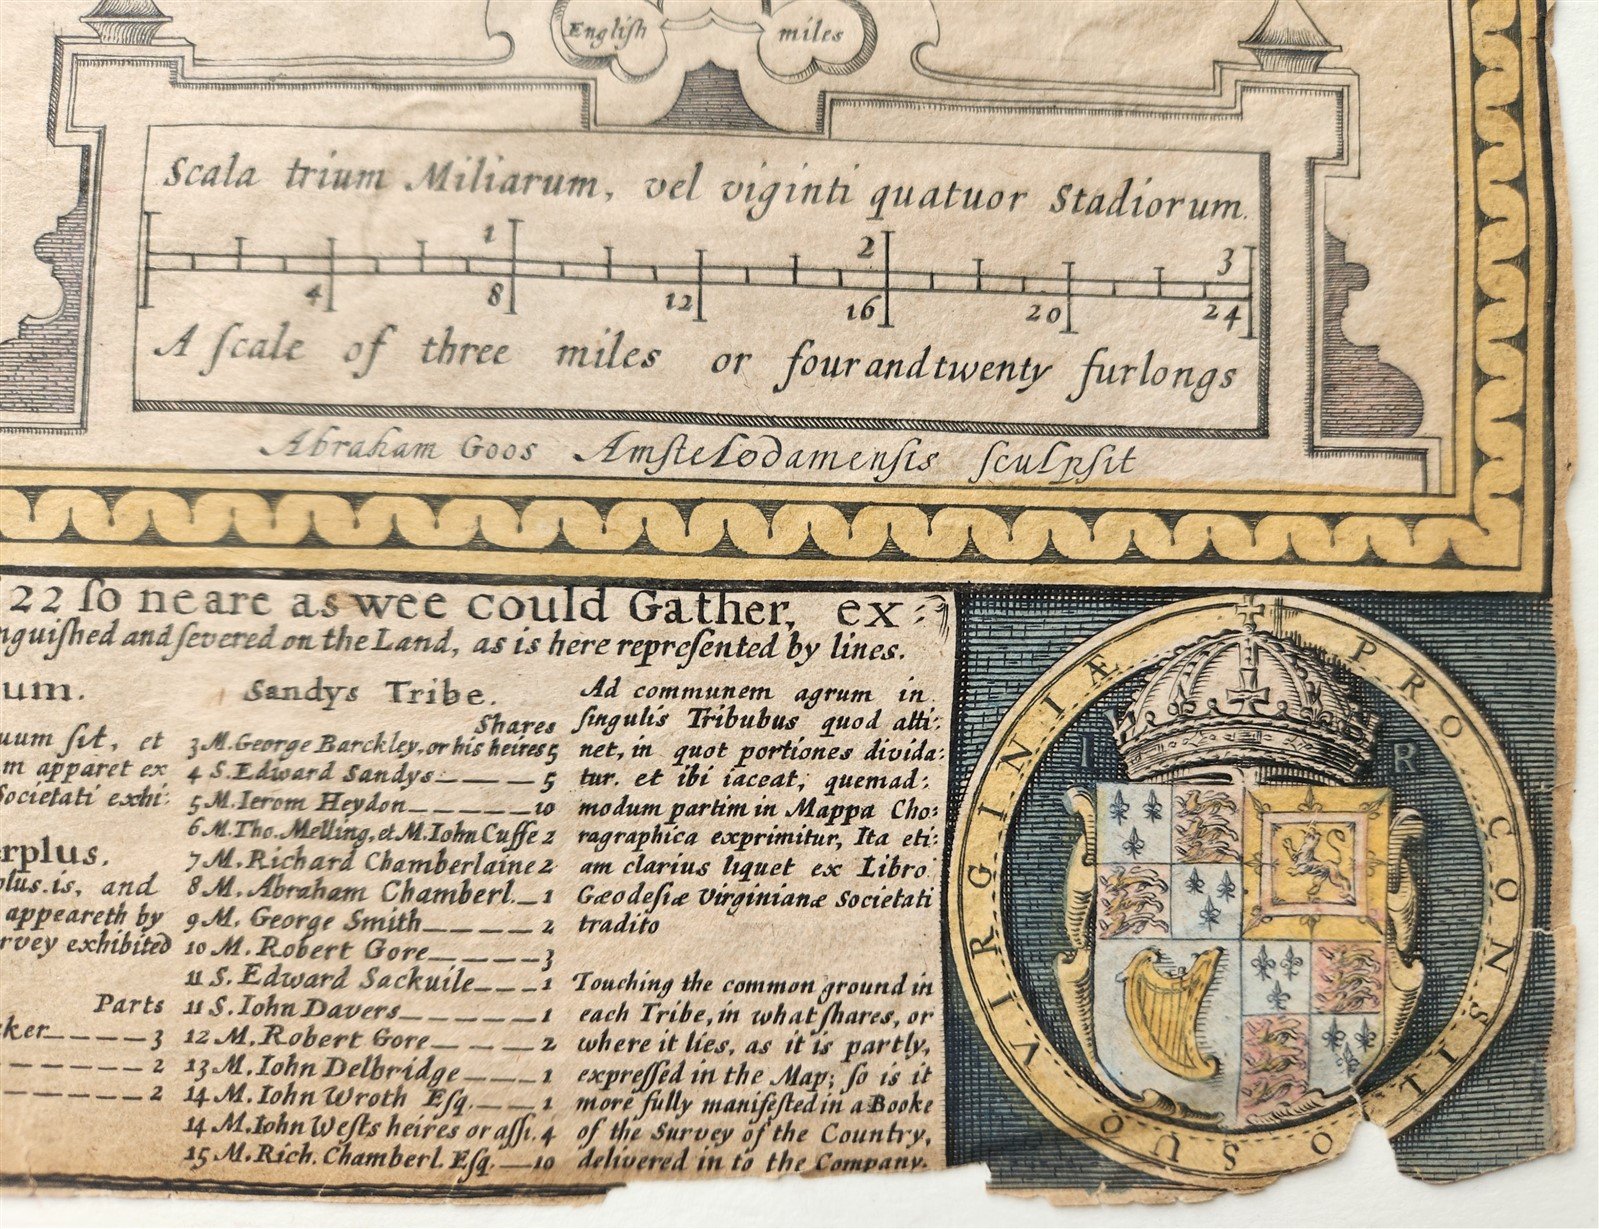 Engliſh miles
Scala trium Miliarum, vel viginti quatuor Stadiorum.
1 2 3
4 8 12 16 20 24
A ſcale of three miles or four and twenty furlongs
Abraham Goos Amſtelodamenſis ſculpſit
22 ſo neare as wee could Gather, ex:
nguiſhed and ſevered on the Land, as is here repreſented by lines.
um.
uum ſit, et
m apparet ex
Societati exhi:
erplus.
plus is, and
appeareth by
rvey exhibited
Parts
ker 3
2
2
Sandys Tribe.
Shares
3 M. George Barckley, or his heires 5
4 S. Edward Sandys 5
5 M. Ierom Heydon 10
6 M. Tho. Melling, et M. Iohn Cuffe 2
7 M. Richard Chamberlaine 2
8 M. Abraham Chamberl. 1
9 M. George Smith 2
10 M. Robert Gore 3
11 S. Edward Sackuile 1
11 S. Iohn Davers 1
12 M. Robert Gore 2
13 M. Iohn Delbridge 1
14 M. Iohn Wroth Eſq. 1
14 M. Iohn Weſts heires or aſſi. 4
15 M. Rich. Chamberl. Eſq. 10
Ad communem agrum in
ſingulis Tribubus quod atti:
net, in quot portiones divida:
tur. et ibi iaceat, quemad:
modum partim in Mappa Cho:
ragraphica exprimitur, Ita eti:
am clarius liquet ex Libro
Gæodeſiæ Virginianæ Societati
tradito
Touching the common ground in
each Tribe, in what ſhares, or
where it lies, as it is partly,
expreſſed in the Map; ſo is it
more fully manifeſted in a Booke
of the Survey of the Country,
delivered in to the Company.
PRO CONSILIO SUO VIRGINIÆ
I R